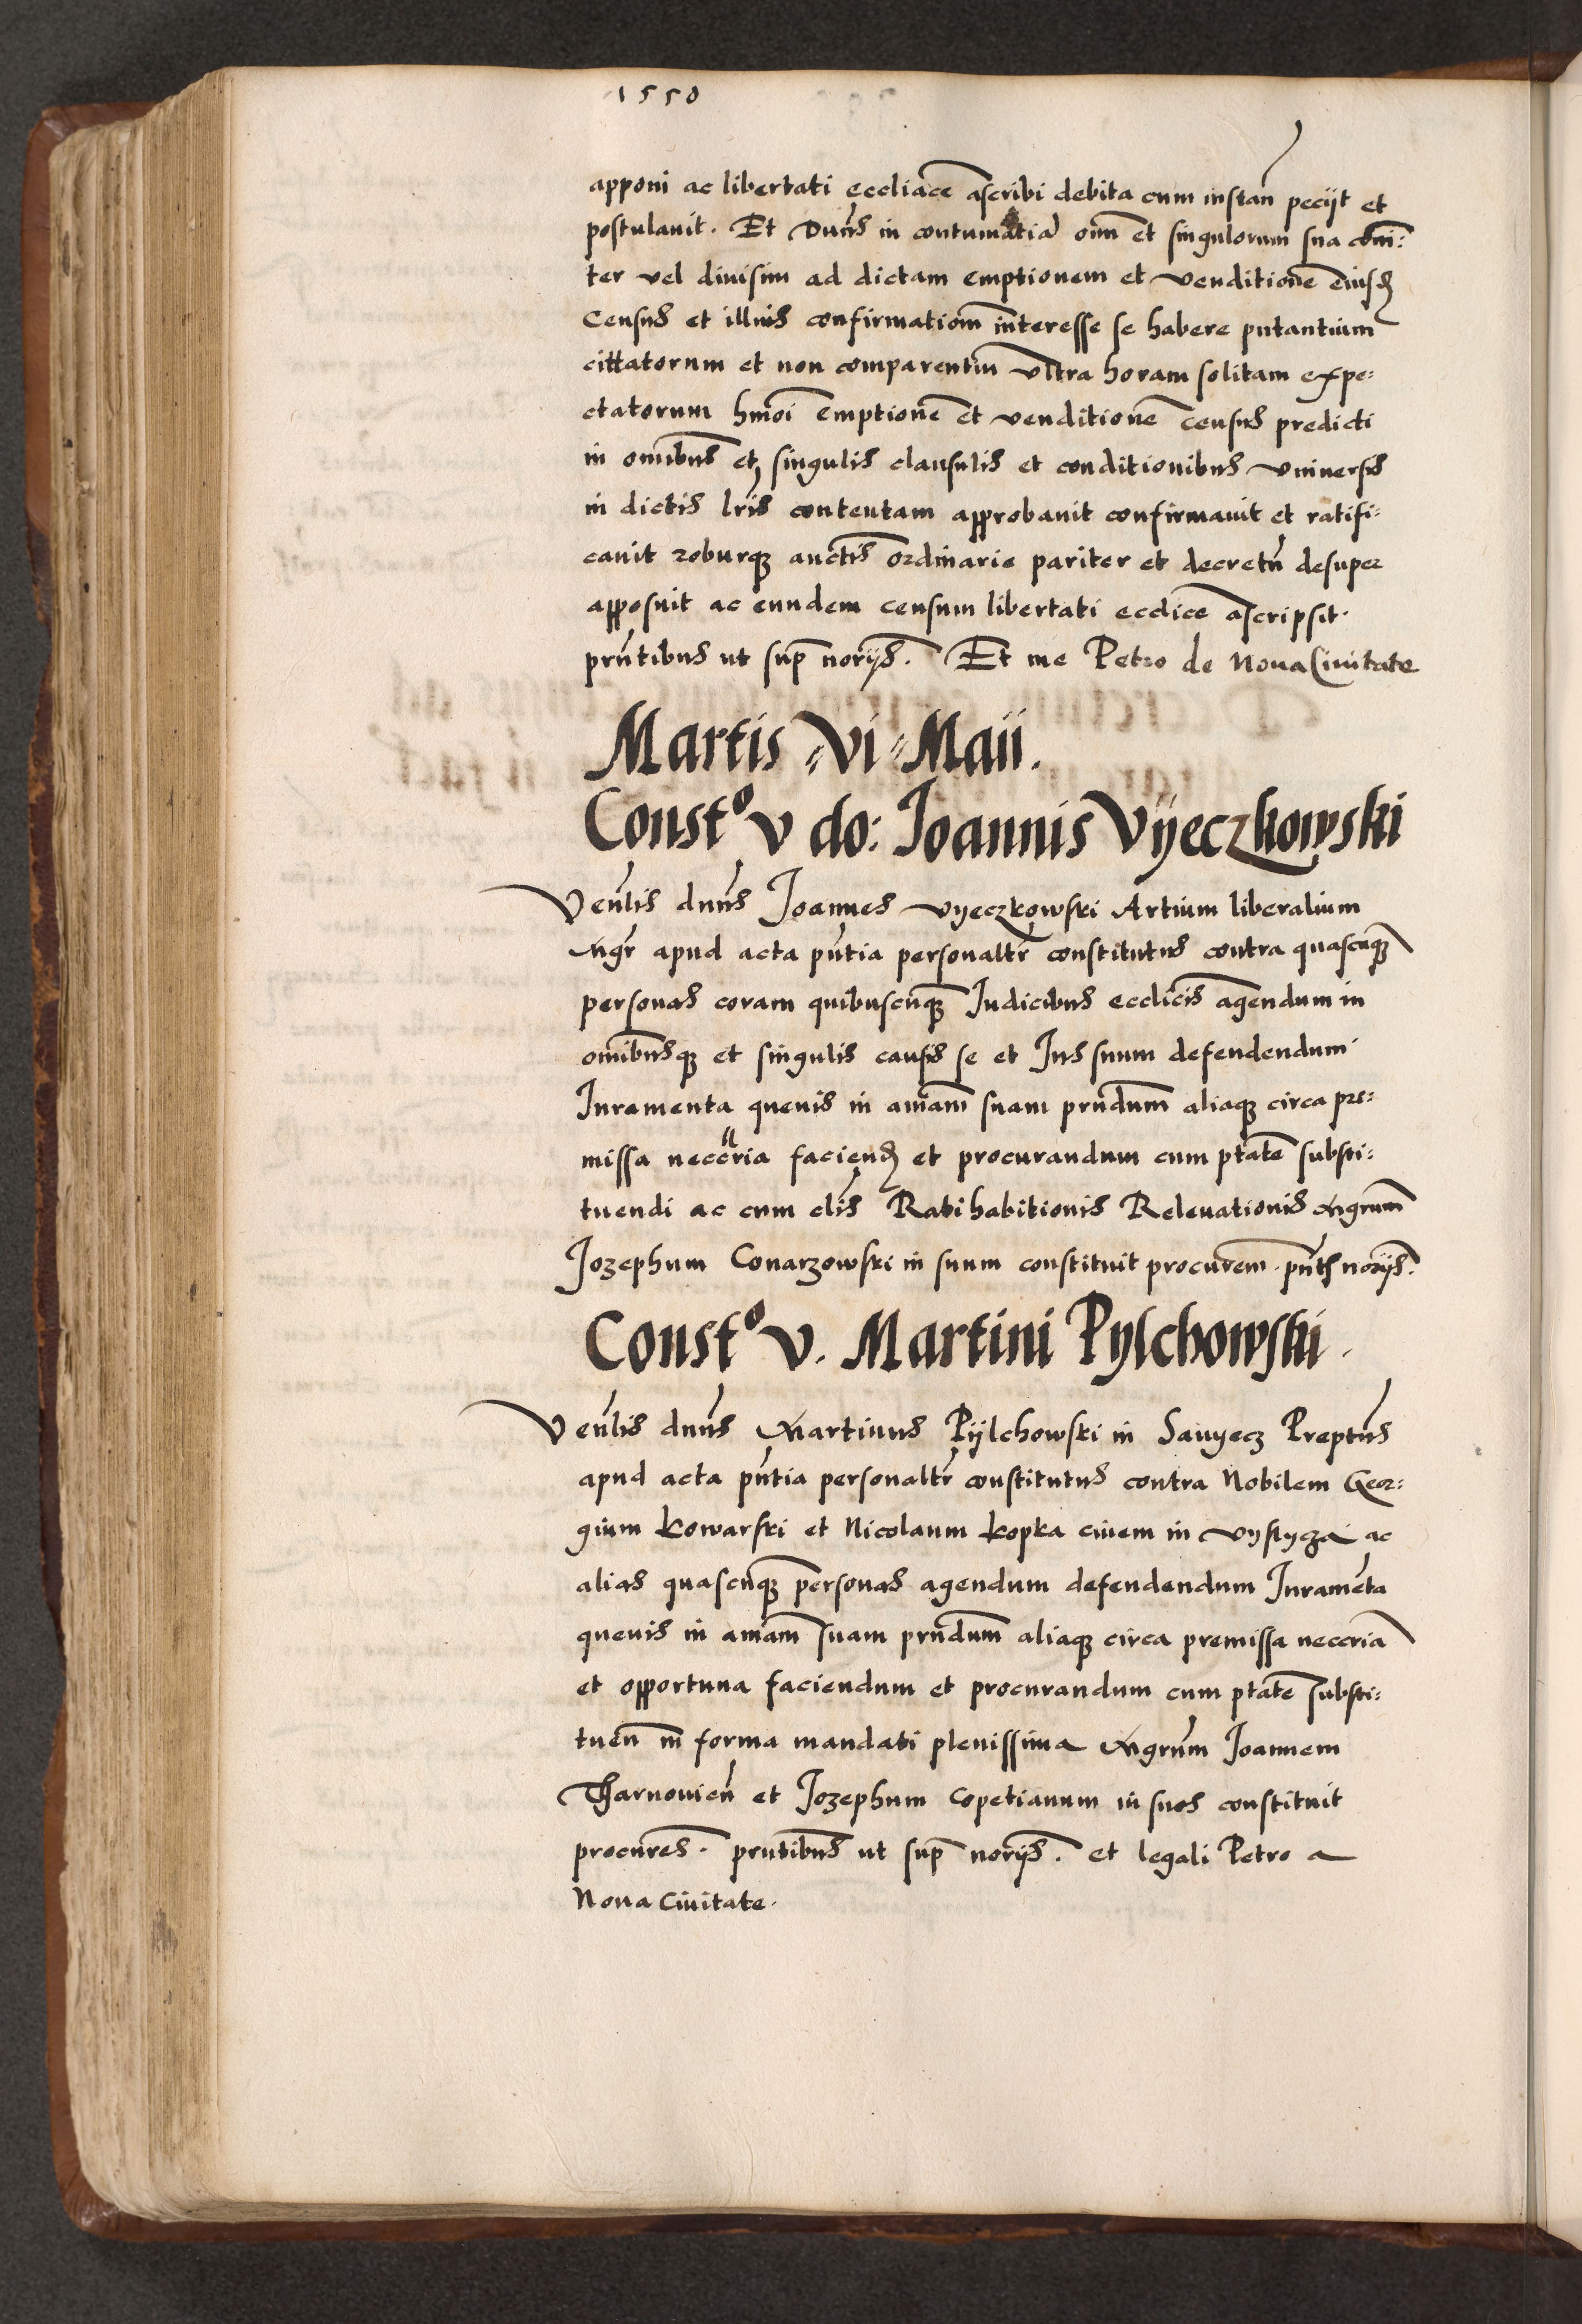 1550
apponi ac libertati eccliace ascribi debita cum instan peciit et
postulauit. Et Duns in contumatia oim et singulorum sua coni:
ter vel diuisim ad dictam emptionem et venditione eiusd
Census et illius confirmationi interesse se habere putantium
cittatorum et non comparentiu vltra horam solitam expe:
ctatorum hmoi emptione et venditione census predicti
in omibus et singulis clausulis et conditionibus vniversis
in dictis lris contentam approbauit confirmauit et ratifi:
cauit roburq auctis ordinarie pariter et decretu desuper
apposuit ac eundem censum libertati ecclice ascripsit.
prntibus ut sup norijs. Et me Petro de Noua Ciuitate
Martis vi Maii.
Const° v do: Joannis Vyeczkowski
Venlis dnns Joannes vyeczkowski Artium liberalium
Mgr apud acta pntia personaltr constitutus contra quascuq
personas coram quibuscuq Judicibus ecclicis agendum in
omibusq et singulis causis se et Jus suum defendendum
Juramenta queuis in aniam suam prndum aliaq circa pre:
missa neccria faciend et procurandum cum ptate substi:
tuendi ac cum clis Ratihabitionis Releuationis Mgrum
Jozephum Conarzowski in suum constituit procurem. pnt norijs.
Const° v. Martini Pylchowski.
Venlis dnns Martinus Pijlchowski in Sanyecz Preptus
apud acta pntia personaltr constitutus contra Nobilem Geor:
gium Kowarski et Nicolaum Kopka ciuem in vyslycza ac
alias quascuq personas agendum defendendum Juramēta
queuis in aniam suam prndum aliaq circa premissa neccria
et opportuna faciendum et procurandum cum ptate substi:
tuen in forma mandati plenissima Mgrum Joannem
Tharnouien et Jozephum Copetianum in suos constituit
procures. prntibus ut sup norijs. et legali Petro a
Noua Ciuitate.